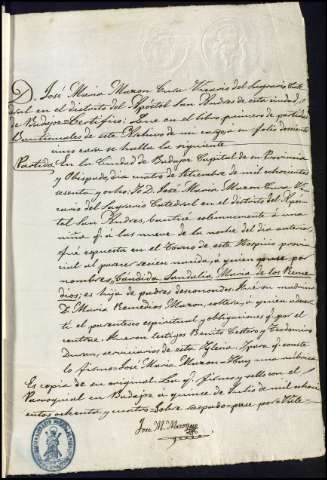 D. José Maria Maron Cura Vicario del Sagrario Cate
dral en el distrito del Apóstol San Andres de esta ciudad
de Badajoz = Certifico: Que en el libro primero de partidas
Bautismales de este Archivo de mi cargo y a folio
se halla la siguiente
Partida En la Ciudad de Badajoz Capital de su Provincia
y Obispado, dia cuatro de Setiembre de mil ochocientos
sesenta y ocho: Yo D. José Maria Maron Cura Vi
cario del Sagrario Catedral en el distrito del Após
tol San Andres, Bauticé solemnemente á una
niña q.e á las nueve de la noche del dia anterior
fué espuesta en el Torno de este Hospicio provin
cial al parecer recien nacida, á quien puse por
nombres, Candida Sandalia, Maria de los Reme
dios; es hija de padres desconocidos. Fué su madrina
D.a Maria Remedios Maron, soltera, á quien adver
tí el parentesco espiritual y obligaciones q.e por el
contrae. Fueron testigos Benito Castro y Teodomiro
Duran, servidores de esta Iglesia. Y para q.e conste
lo firmo = José Maria Maron = Hay una rúbrica
Es copia de su original q.e firmo y sello con el
Parroquial en Badajoz á quince de Julio de mil ocho
cientos ochenta y cuatro = Sobre raspado = puse por = Vale
José M.a Maron